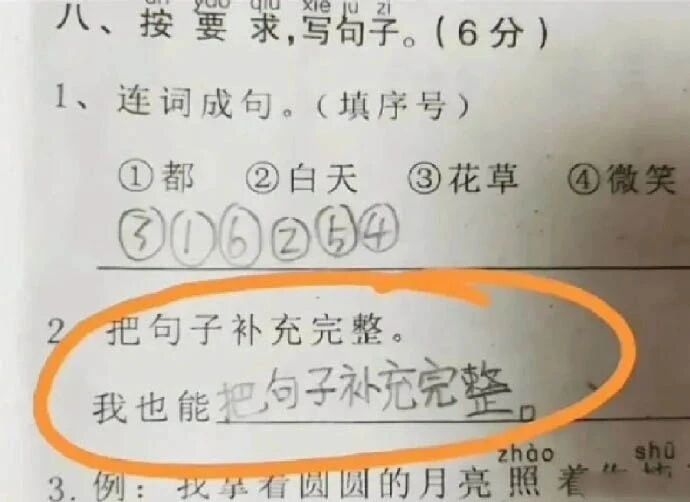 yāo qiú xiě jù zǐ
八、按要求,写句子。(6分)
1、连词成句。(填序号)
①都 ②白天 ③花草 ④微笑
③①⑥②⑤④
2、把句子补充完整。
我也能把句子补充完整。
zhào shū
3. 例: 我拿着圆圆的月亮照着